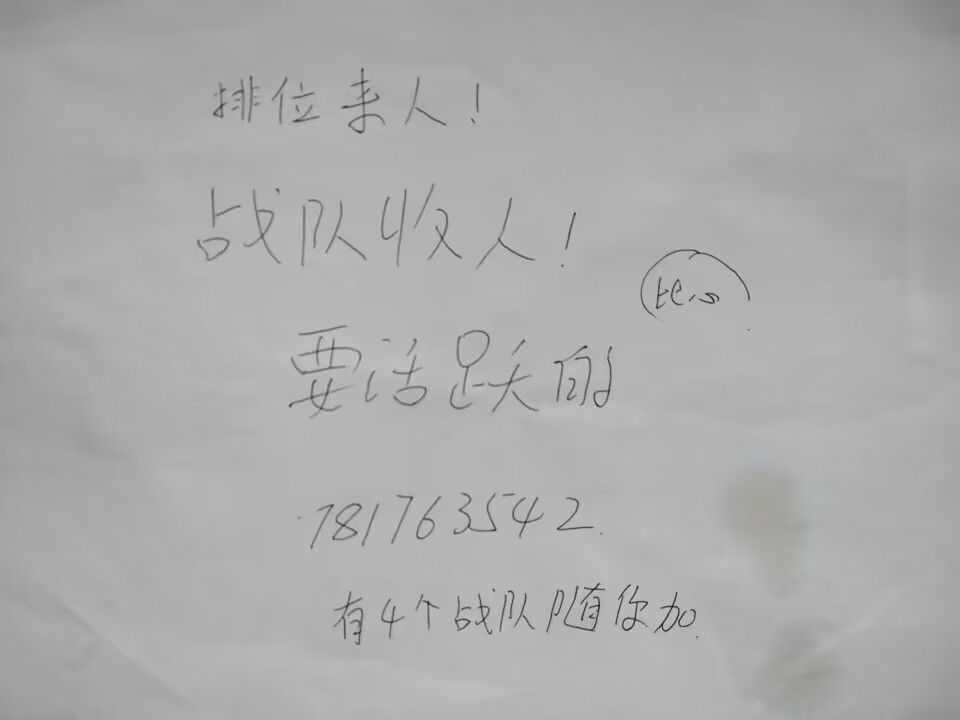 排位来人！
战队收人！
比心
要活跃的
781763542
有4个战队随你加